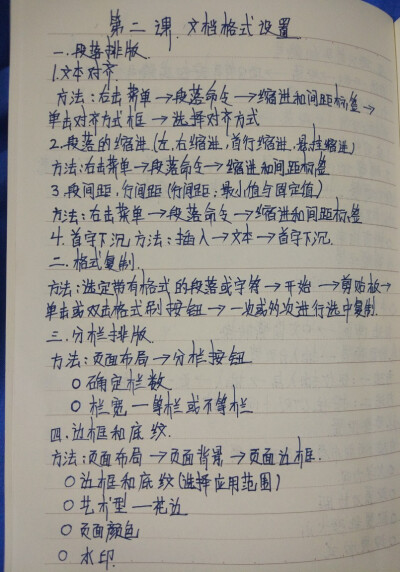 第二课 文档格式设置
一.段落排版
1.文本对齐.
方法:右击菜单→段落命令→缩进和间距标签→
单击对齐方式框→选择对齐方式
2.段落的缩进(左,右缩进,首行缩进,悬挂缩进)
方法:右击菜单→段落命令→缩进和间距标签
3.段间距,行间距(行间距:最小值与固定值)
方法:右击菜单→段落命令→缩进和间距标签
4.首字下沉.方法:插入→文本→首字下沉.
二.格式复制.
方法:选定带有格式的段落或字符→开始→剪贴板→
单击或双击格式刷按钮→一次或多次进行选中复制.
三.分栏排版.
方法:页面布局→分栏按钮
○确定栏数
○栏宽—等栏或不等栏
四.边框和底纹.
方法:页面布局→页面背景→页面边框.
○边框和底纹(选择应用范围)
○艺术型—花边
○页面颜色
○水印.